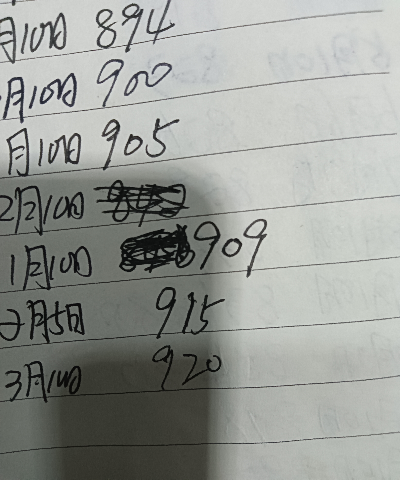 月10日 894
月10日 900
月10日 905
2月10日
1月10日 909
2月5日 915
3月10日 920